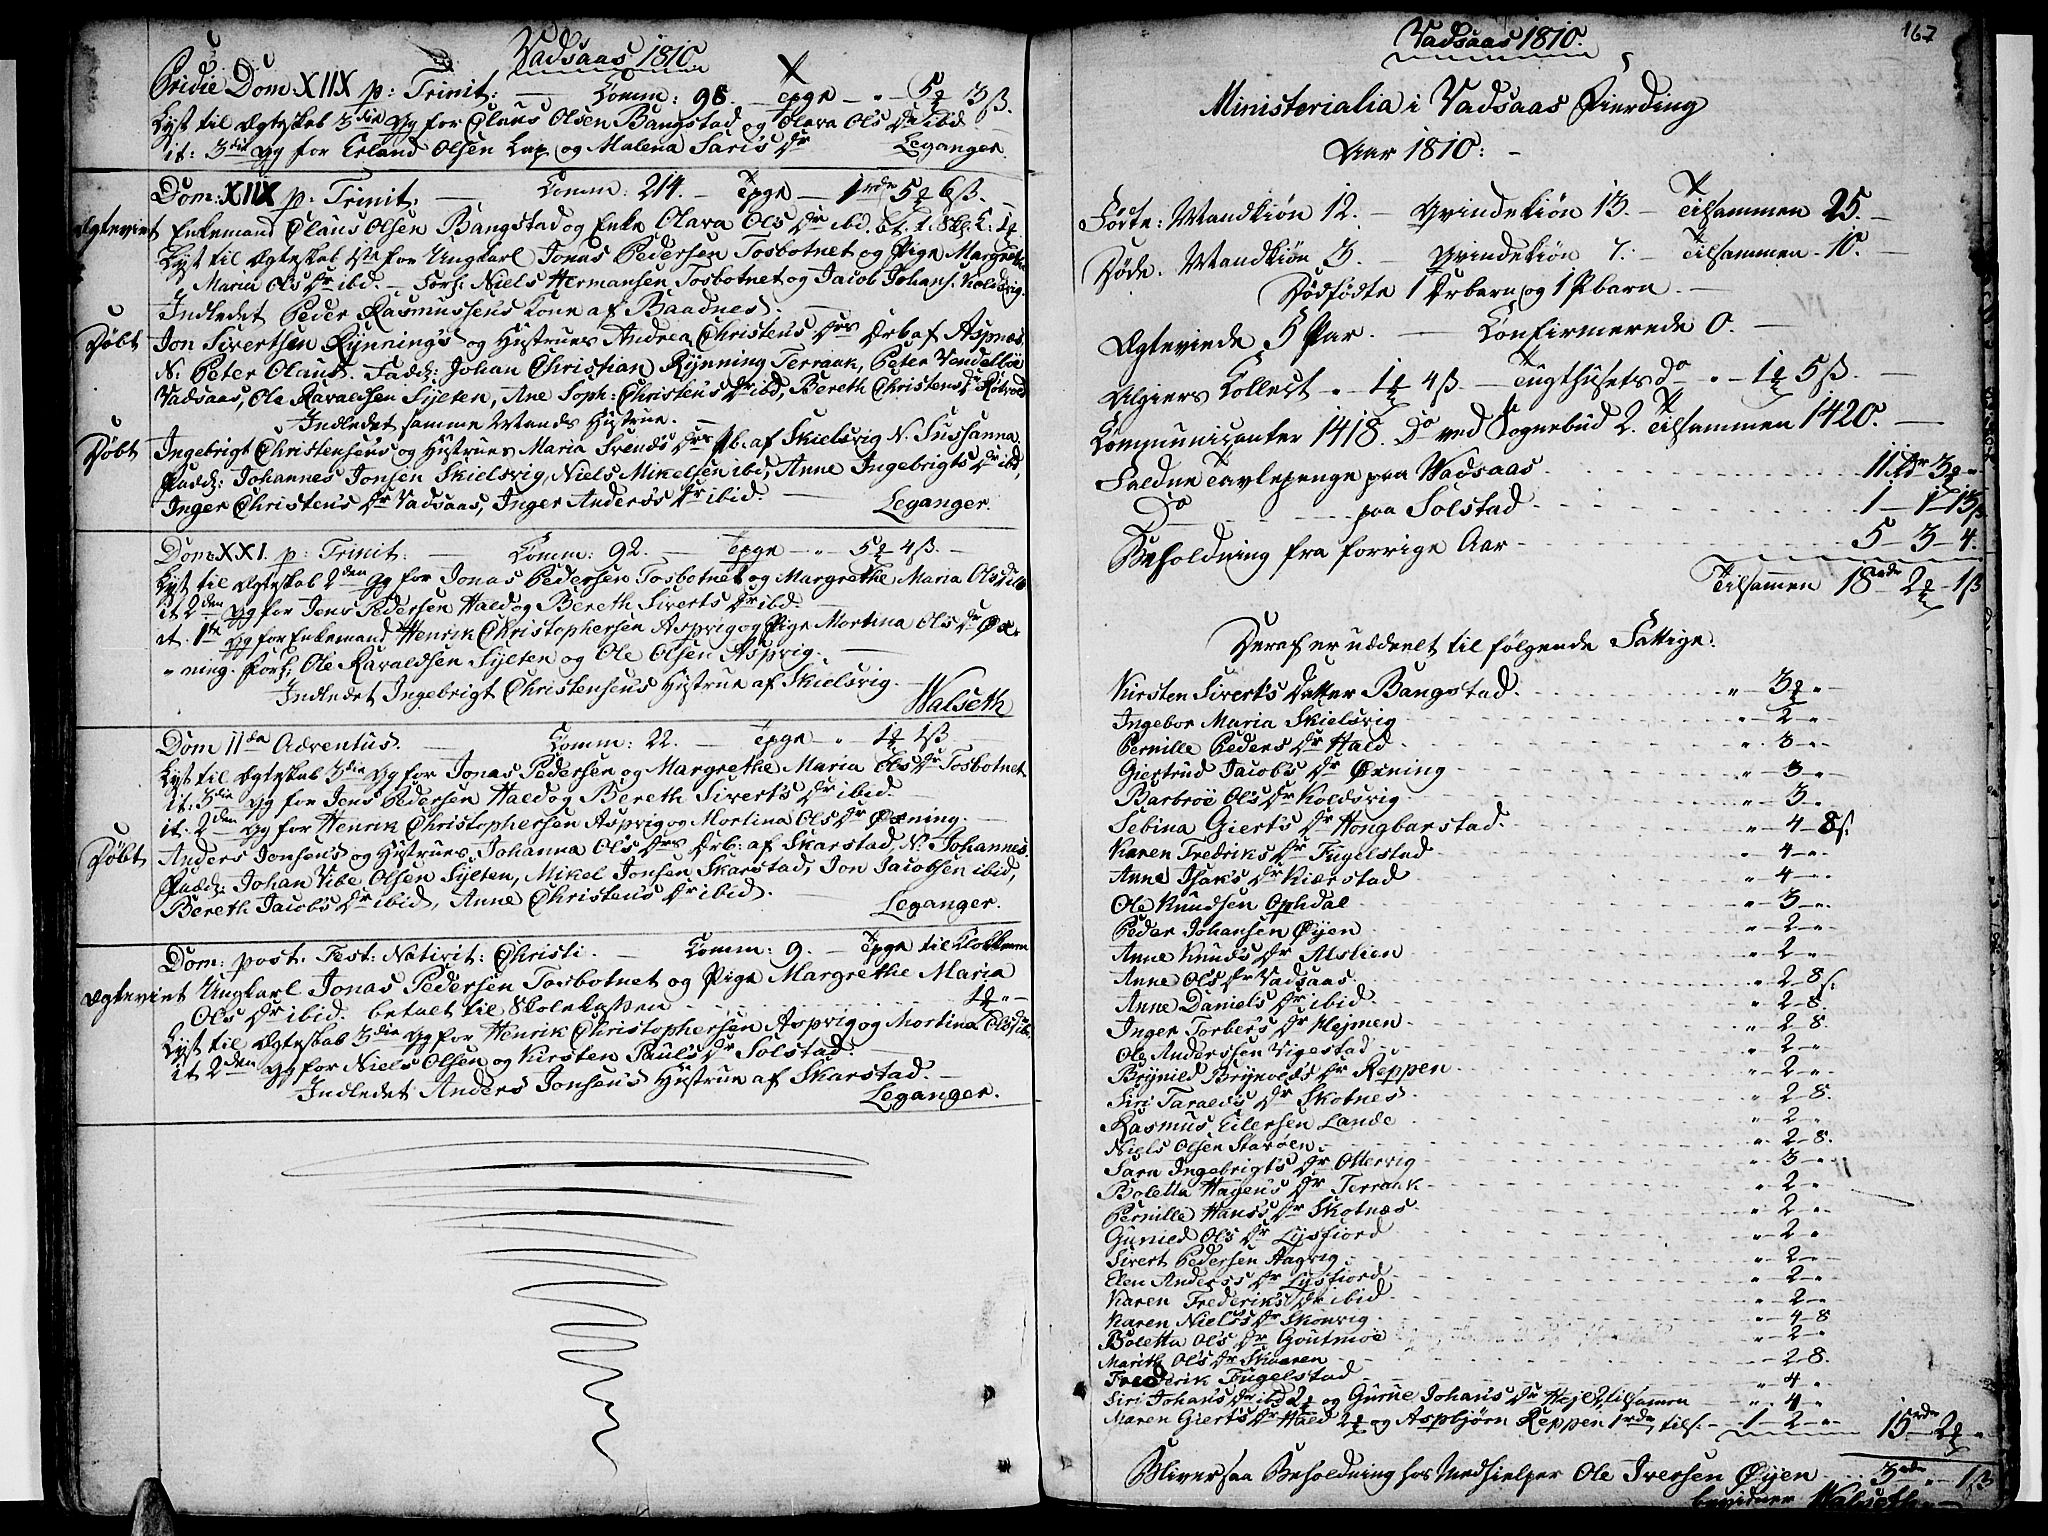 Vadsaas 1810
Pridie Dom XIIX p: Trinit: — Comm: 98. — Tpge — „ — 5 ¤ 13 ß.
Lyst til Ægteskab 3die Gg for Olaus Olsen Bangstad og Olava Ols Dr ibid
it: 3die Gg for Erland Olsen Lap og Malena Saris Dr Leganger.
Dom: XIIX p: Trinit: — Comm: 214. — Tpge — 1rdr 5 ¤ 6 ß. —
Ægteviet Enkemand Olaus Olsen Bangstad og Enke Olava Ols Dr ibd. bt. t. Skl. K: 1 ¤
Lyst til Ægteskab 1ste for Ungkarl Jonas Pedersen Tosbotnet og Pige Margrethe
Maria Ols Dr ibd. — Forl: Niels Hermansen Tosbotnet og Jacob Johans. Koldsvig.
Indledet Peder Rasmussens Kone af Baadnes.
Døbt Jon Sivertsen Rynnings og Hustrues Andrea Christens Drs Drb af Aspnæs
N: Peter Olaus. Fadd: Johan Christian Rynning Terraak, Peter Vendelboe
Vadsaas, Ole Havaldsen Sylten, Ane Soph: Christens Dr ibd, Bereth Christens Dr
Indledet samme Mands Hustrue. —
Døbt Ingebrigt Christensens og Hustrues Maria Svends Drs Pb. af Skielsvig N. Sussanna.
Fadd: Johannes Jonsen Skielsvig, Niels Mikelsen ibd, Anne Ingebrigts Dr ibd,
Inger Christens Dr Vadsaas, Inger Anders's Dr ibid. — Leganger.
Dom: XXI. p: Trinit: — Comm: 92. — Tpge — „ 5 ¤ 4 ß. —
Lyst til Ægteskab 2den Gg for Jonas Pedersen Tosbotnet og Margrethe Maria Ols Dr ibd
it 2den Gg for Jens Pedersen Hald og Bereth Siverts Dr ibd. —
it. 1ste Gg for Enkemand Henrik Christophersen Aspvig og Pige Martina Ols Dr Øx-
„ning. Forl: Ole Havaldsen Sylten og Ole Olsen Aspvig. —
Indledet Ingebrigt Christensens Hustrue af Skielsvig. — Walseth
Dom IIda Adventus. — Comm: 22. — Tpge — „ 1 ¤ 1 ß
Lyst til Ægteskab 3die Gg for Jonas Pedersen og Margrethe Maria Ols Dr Tosbotnet
it: 3die Gg for Jens Pedersen Hald og Bereth Siverts Dr ibid.
it. 2den Gg for Henrik Christophersen Aspvig og Martina Ols Dr Øxning. —
Døbt Anders Jonsens og Hustrues Johanna Ols Drs Drb: af Skarstad, N: Johannes.
Fadd: Johan Vibe Olsen Sylten, Mikel Jonsen Skarstad, Jon Jacobsen ibid,
Bereth Jacobs Dr ibid, Anne Christens Dr ibid. — Leganger.
Dom: post. Fest: Nativit: Christi. — Comm: 9. — Tpge til Klokkeren
Ægteviet Ungkarl Jonas Pedersen Tosbotnet og Pige Margrethe Maria
Ols Dr ibid. betalt til Skolekassen 1 ¤ „ —
Lyst til Ægteskab 3die Gg for Henrik Christophersen Aspvig og Martina Ols Dr ibd.
it 2den Gg for Niels Olsen og Kirsten Pauls Dr Solstad. —
Indledet Anders Jonsens Hustrue af Skarstad. —
Leganger.
167
Vadsaas 1810.
Ministerialia i Vadsaas Fierding
Aar 1810: —
Fødte: Mandkiøn 12. — Qvindekiøn 13. — Tilsammen 25. —
Døde. Mandkiøn 3. — Qvindekiøn 7. — Tilsammen — 10. —
Dødfødte 1 Drbarn og 1 Pbarn. —
Ægteviede 5 Par. — Confirmerede 0. —
Algiers Collect — „ — 1 ¤ 4 ß — Tugthusets Do — „ — 1 ¤ 5 ß. —
Communicanter 1418. Do ved Sognebud 2. Tilsammen 1420. —
Faldne Tavlepenge paa Vadsaas 11 rdr 3 ¤ „
Do paa Solstad 1 — 1 — 13 ß
Beholdning fra forrige Aar 5 — 3 — 4.
Tilsamen 18 rdr 2 ¤ 1 ß
Deraf er uddeelt til følgende Fattige.
Kirsten Sivert's Datter Bangstad. „ 3 ¤ „
Ingebor Maria Skielsvig „ 2 „
Pernille Peders Dr Hald „ 3 „
Giertrud Jacob's Dr Øxning „ 3 „
Barbroe Ol's Dr Koldsvig „ 3 „
Sebina Giert's Dr Hongbarstad. „ 4 — 8 ß.
Karen Fredriks Dr Fugelstad „ 4 „
Anne Isak's Dr Kiærstad „ 4 „
Ole Knudsen Ophdal „ 3 „
Peder Johansen Øyen „ 2 „
Anne Knud's Dr Alslien „ 2 „
Anne Ol's Dr Vadsaas „ 2 — 8 ß.
Anne Daniels Dr ibid „ 2 — 8.
Inger Torber's Dr Hejmen „ 2 8.
Ole Anderssen Vigestad „ 2 „
Brynild Brynolds Dr Reppen „ 2 „
Siri Taralds Dr Skotnes „ 2 — 8.
Rasmus Eilersen Lande „ 2 „
Niels Olsen Starøen „ 2 — 8.
Sara Ingebrigt's Dr Ottervig „ 3 „
Boletta Hagen's Dr Terraak „ 2 „
Pernille Hans's Dr Skotnæs „ 2 „
Gunild Ol's Dr Lysfiord „ 2 „
Sivert Pedersen Aagvig „ 2 „
Elen Anders's Dr Lysfiord „ 2 „
Karen Frederiks's Dr ibid „ 2 „
Karen Niels's Dr Skonvig „ 4 — 8
Boletta Ol's Dr Goutmoe „ 2 „
Marith Ol's Dr Skaaren 2 8.
Frederik Fugelstad „ 4 „
Siri Johan's Dr ibd 2 ¤ og Gurue Johan's Dr Heje 2, tilsamen „ 4 „
Maren Giert's Dr Hald 2 ¤ og Aspbjørn Reppen 1 rdr, tils. — 1 — 2 — „ 15 rdr 2 ¤ „
Bliver saa Beholdning hos Medhielper Ole Iversen Øyen 3 rdr „ 1 ß
bevidner Walseth